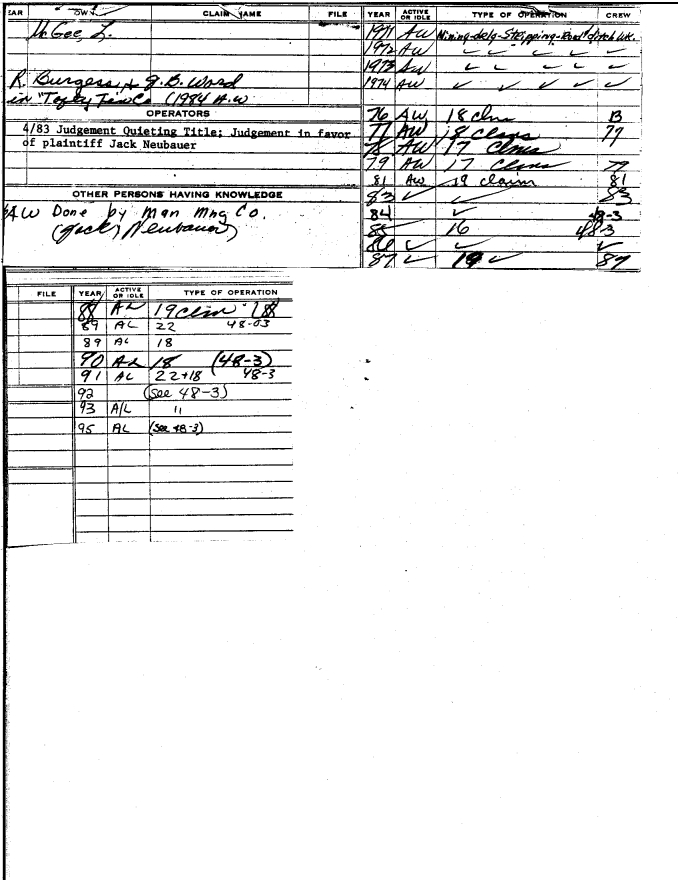 EAR OW CLAIM NAME FILE
McGee, L.
R. Burgess + J.B. Ward
in "Tofty Tin Co (1984 A.W
OPERATORS
4/83 Judgement Quieting Title; Judgement in favor
of plaintiff Jack Neubauer
OTHER PERSONS HAVING KNOWLEDGE
AW Done by Man Mng Co.
(Jack Neubauer)
YEAR ACTIVE OR IDLE TYPE OF OPERATION CREW
1971 AW Mining-delg-Stripping-Road/ditch Wk.
1972 AW ✓ ✓ ✓ ✓ ✓
1973 AW ✓ ✓ ✓ ✓ ✓
1974 AW ✓ ✓ ✓ ✓ ✓
76 AW 18 clms 13
77 AW 18 Clms 77
78 AW 17 Clms
79 AW 17 Clms 79
81 AW 19 claim 81
83 ✓ ✓ 83
84 ✓ 48-3
85 16 48-3
86 ✓ ✓ ✓
87 ✓ 19 ✓ 87
FILE YEAR ACTIVE OR IDLE TYPE OF OPERATION
88 AL 19 clm 88
89 AL 22 48-03
89 AL 18
90 AL 18 (48-3)
91 AL 22+18 48-3
92 (see 48-3)
93 A/L "
95 AL (see 48-3)